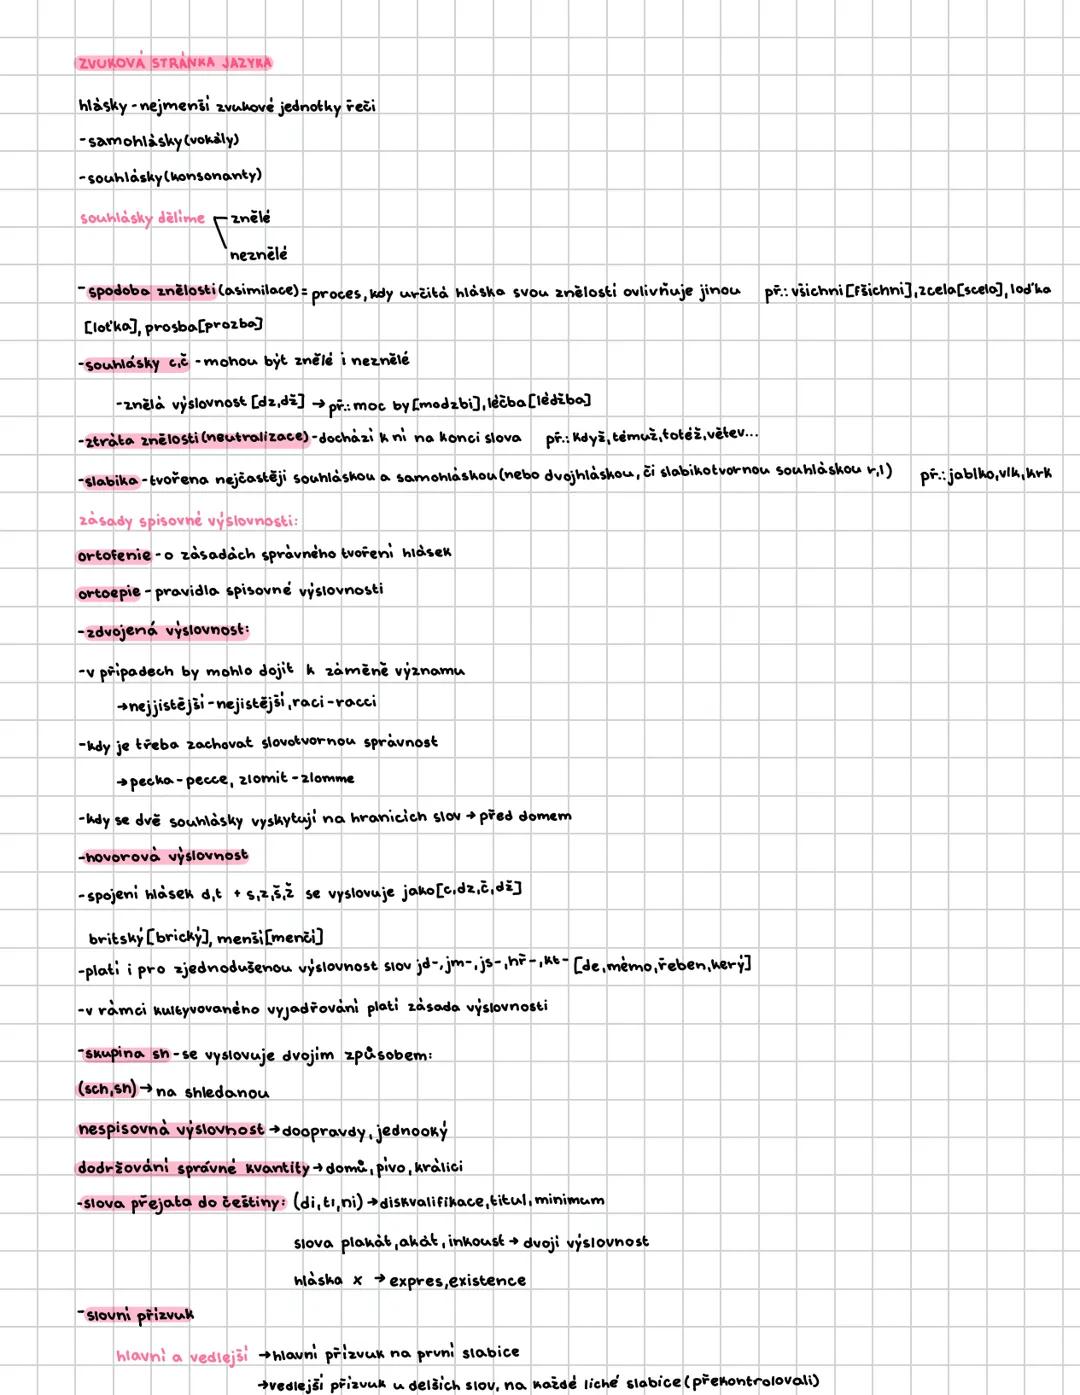 ZVUKOVÁ STRÁNKA JAZYKA
hlásky - nejmenší zvukové jednotky řeči
-samohlásky (vokály)
-souhlásky (konsonanty)
souhlásky dělíme znělé
neznělé
- spodoba znělosti (asimilace) = proces, kdy určitá hláska svou znělostí ovlivňuje jinou př.: všichni [fšichni], zcela [scela], loďka
[loťka], prosba [prozba]
-souhlásky c,č - mohou být znělé i neznělé
-znělá výslovnost [dz,dž] → př.: moc by [modzbi], léčba [lédžba]
-ztráta znělosti (neutralizace) - dochází k ní na konci slova př.: když, témuž, totéž, větev...
-slabika - tvořena nejčastěji souhláskou a samohláskou (nebo dvojhláskou, či slabikotvornou souhláskou r,l) př.: jablko, vlk, krk
zásady spisovné výslovnosti:
ortofenie - o zásadách správného tvoření hlásek
ortoepie - pravidla spisovné výslovnosti
-zdvojená výslovnost:
-v případech by mohlo dojít k záměně významu
→nejjistější - nejistější, raci - racci
-kdy je třeba zachovat slovotvornou správnost
→pecka - pecce, zlomit - zlomme
-kdy se dvě souhlásky vyskytují na hranicích slov → před domem
-hovorová výslovnost
-spojení hlásek d,t + s,z,š,ž se vyslovuje jako [c,dz,č,dž]
britský [brický], menší [menčí]
-platí i pro zjednodušenou výslovnost slov jd-, jm-, js-, hř-, kt- [de, mémo, řeben, kerý]
-v rámci kultyvovaného vyjadřování platí zásada výslovnosti
-skupina sh - se vyslovuje dvojím způsobem:
(sch,sh) → na shledanou
nespisovná výslovnost → doopravdy, jednooký
dodržování správné kvantity → domů, pivo, králíci
-slova přejata do češtiny: (di, ti, ni) → diskvalifikace, titul, minimum
slova plakát, akát, inkoust → dvojí výslovnost
hláska x → expres, existence
-slovní přízvuk
hlavní a vedlejší → hlavní přízvuk na první slabice
→vedlejší přízvuk u delších slov, na každé liché slabice (překontrolovali)